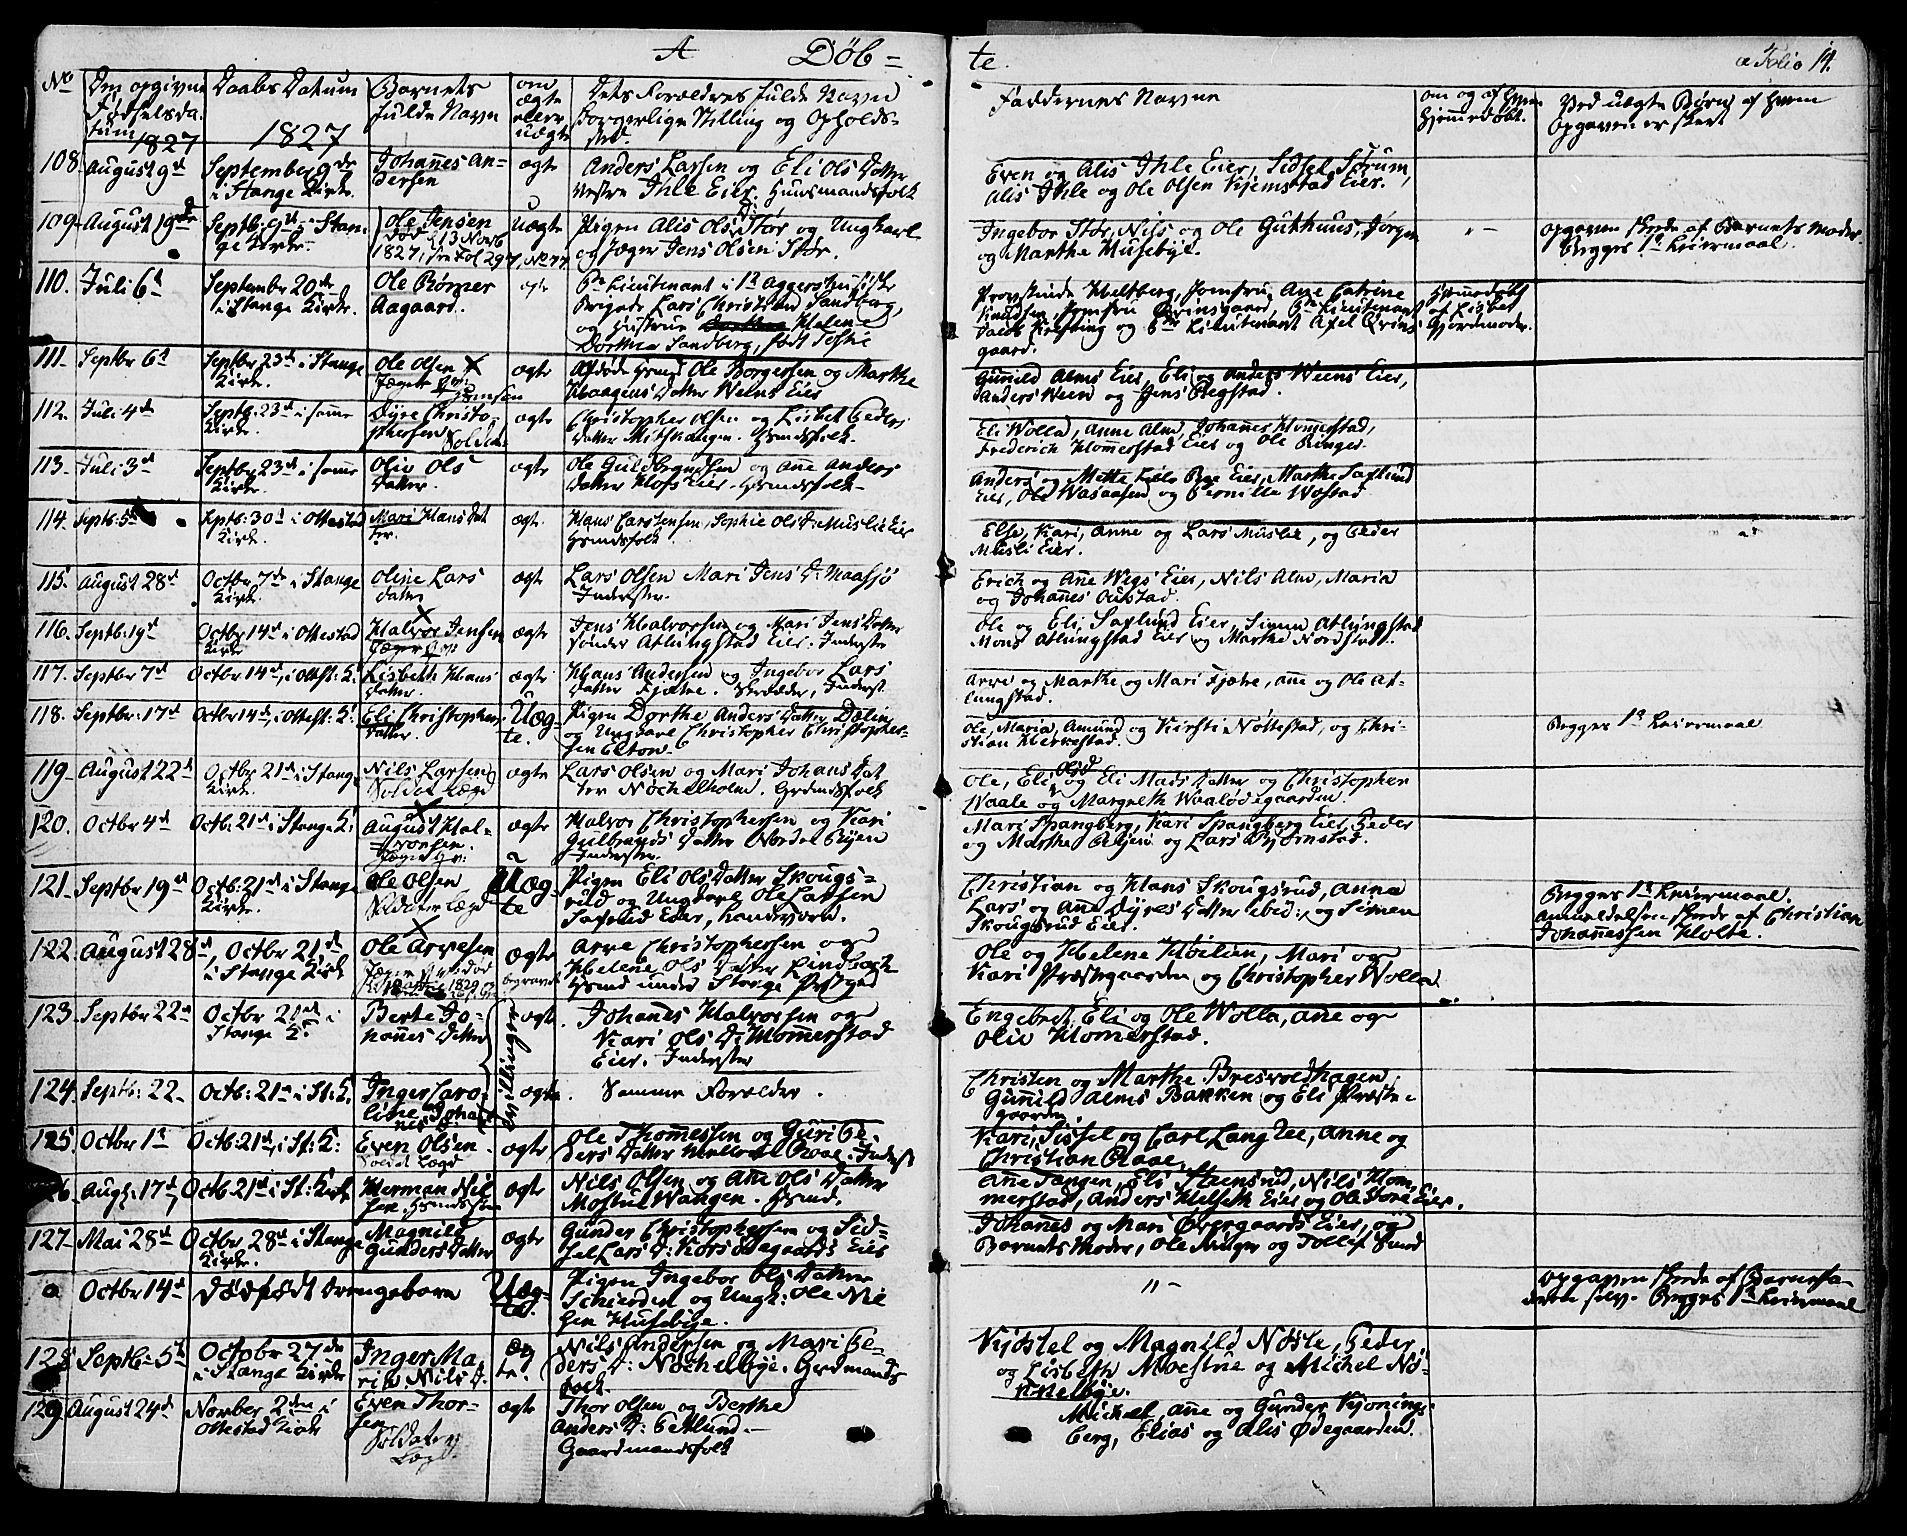 A Døb=
te.
a Folio 14.
No
Den opgivne Fødselsdatum 1827
Daabs Datum 1827
Barnets fulde Navn
om ægte eller uægte
Dets Forældres fulde Navn Borgerlige Stilling og Opholdssted.
Faddernes Navne
om og af hvem hjemmedøbt.
Ved uægte Børn af hvem Opgaven er skeet
108. August 9d
Septemb 9de i Stange Kirke.
Johanes Andersen
ægte
Anders Larsen og Eli Ols Datter Vestre Ihle Eier. Huusmandsfolk
Even og Alis Ihle Eier, Sidsel Sørum,
Alis Ihle og Ole Olsen Kjemstad Eier.
109. August 19de
Septb: 9d i Stange Kirke
Ole Jensen
Død d 13 Novb
1827, see Fol 297, No 77
Uægte
Pigen Alis Ols D: Stør og Ungkarl
og Jæger Jens Olsen Stør.
Ingebor Stør, Nils og Ole Guthuus, Jørgen
og Marthe Musebye.
" -
Opgaven skede af Barnets Moder
Begges 1te Leiermaal.
110. Juli 6d
September 20de i Stange Kirke.
Ole Rømer Aagaard.
ægte
Pr Lieutenant i 1te Aggershusiske
Brigade Lars Christian Sandberg,
og Hustrue Helene
Dorthea Sandberg, født
Provstinde Heltberg, Jomfru Ane Catrine
Knudsen, Jomfru Qvinsgaard, Pr Lieutenant
Jacob Krefting og Pr Lieutenant Axel Qvins
gaard.
Hjemmedøbt
af Lisbet
Gjordmoder.
111. Septbr 6d
Septbr 23d i Stange Kirke.
Ole Olsen X
Jæger
ægte
Afdøde Ole Borgersen og Marthe
Haagens Datter Weens Eier
Gunild Alms Eier, Eli og Anders Weens Eier,
Anders Ween og Jens Regstad.
112. Juli 4d
Septb: 23d i samme Kirke.
Dyre Christophersen
Soldat
ægte
Christopher Olsen og Lisbet Peders
Datter Mithvangen. Hsmdsfolk.
Eli Wolla, Anne Alm, Johannes Homerstad,
Frederich Hommerstad Eier og Ole Ringer
113. Juli 3d
Septbr 23d i samme Kirke.
Oliv Ols Datter.
ægte
Ole Guldbrandsen og Ane Anders
Datter Hofs Eier. Hsmdsfolk.
Anders og Mette Lille Bye Eier, Marthe Saxlund
Eier, Ole Waaasen og Pernille Wostad
114. Septb: 5d
Septb: 30d i Ottestad Kirke.
Mari Hans Datter.
ægte.
Hans Carstensen, Sophie Ols D: Muslie Eier
Hsmdsfolk.
Else, Kari, Anne og Lars Muslie, og Peder
Musli Eier.
115. August 28d
Octbr 7de i Stange Kirke.
Oline Lars Datter
ægte
Lars Olsen Mari Jens D: Maasjø
Inderster.
Erich og Ane Wigs Eier, Nils Alm, Maria
og Johanes Oustad.
116. Septb: 19d
Octbr 14d i Ottestad Kirke
X
Halvor Jensen
Jæger
ægte
Jens Halvorsen og Mari Jens Datter
Sønder Atlungstad Eier. Inderste
Ole og Eli Saxlund Eier, Simen Atlungstad
Mons Atlungstad Eier og Marthe Nordstad.
117. Septbr 7d
Octbr 14d, i Ottst: K:
Lisbeth Hans Datter.
ægte
Hans Andersen og Ingebor Lars
Datter Fjætre. Inderst
Arve og Marthe og Mari Fjætre, Ane og Ole At-
lungstad.
118. Septbr: 17d
Octbr 14d, i Ottest: K:
Eli Christophers Datter.
Uægte.
Pigen Dorthe Anders Datter Dælin
og Ungkarl Christopher Christopher-
sen Elton.
Ole, Maria, Amund og Kiersti Nøttestad, og Chri-
stian Herkestad.
Begges 1te Leiermaal
119. August 22d
Octbr 21d i Stange Kirke.
Nils Larsen
Soldat Lægd
ægte
Lars Olsen og Mari Johans Dat
ter Nøchelholm. Grdmdsfolk
Ole, Eli Olsd og Eli Mads Datter og Christopher
Waale og Margreth Waalødegaarden.
120. Octbr 4d
Octb: 21d i Stange K:
X
August Halvorsen.
Jæger
ægte
Halvor Christophersen og Kari
Gulbrands Datter Nordre Ryen
Inderster.
Mari Spangberg, Kari Spangberg Eier, Peder
og Marthe og Lars Bjørnstad.
121. Septbr 19d
Octb: 21d i Stange Kirke.
Ole Olsen
Soldater Lægd
Uægte
Pigen Eli Ols Datter Skougs-
rud og Ungkarl Ole Larsen
Saxlund Eier, Landeværn.
Christian og Hans Skougsrud, Anna
Lars og Ane Dyres Datter ibid:, og Simen
Skougsrud Eier.
Begges 1te Leiermaal.
Anmeldelsen skede af Christian
Johannessen Holte.
122. August 28d,
Octbr 21d i Stange Kirke
X
Ole Arvesen
Jæger
1829
ægte
begravet
Arve Christophersen og
Helene Ols Datter Lindbæk
Hsmd under Stange Prstgrd
Ole og Helene Høilien, Mari og
Kari Præstegaarden og Christopher Wolla
123. Septbr 22d
Octbr 21d i Stange K:
Berte Johannes Datter
ægte.
Tvillinger
Johanes Halvorsen og
Kari Ols D: Hommerstad
Eier. Inderster
Engebret, Eli og Ole Wolla, Ane og
Oliv Homerstad.
124. Septb: 22.
Octb: 21d i St: K:
Inger Caroline Johannes D:
ægte.
Samme Forældre.
Christen og Marthe Bresvoldhagen,
Gunnild Alms Bakken og Eli Præste-
gaarden.
125. Octbr 1te
Octb: 21d, i St: K:
Even Olsen
Soldat Lægd
ægte
Ole Thomessen og Guri Pe-
ders Datter Mellom Raae. Inderst
Kari, Sissel og Carl Langlee, Anne og
Christian Raae.
126. Aug: 17d
Octb 21d i St: Kirke
Herman Nilsen
ægte
Nils Olsen og Ane Ols Datter
Mostue Wangen. Hsmd.
Ane Tangen, Eli Steensrud, Nils Hom-
merstad, Anders Helseth Eier og Ole Eier.
127. Mai 28d
Octbr 28d i Stange Kirke.
Magnild Gunders Datter
ægte
Gunder Christophersen og Sid-
sel Lars D: Korsødegaards Eier
Johanes og Mari Øvergaards Eier, og
Barnets Moder, Ole Ringer og Tollef Sund
a Octbr 14d
Dødfødt Drengebarn
Uægte.
Pigen Ingebor Ols Datter
Schierden og Ungk: Ole Nil
sen Husebye.
" -
Opgaven skede af Barnefa-
deren selv. Begges 1te Leiermaal
128 Septb: 5d
Octobr 27de i Stange Kirke
Inger Marie Nils D.
ægte.
Nils Andersen og Mari Pe-
ders D: Nøchelbye. Grdmands
folk.
Kjøstel og Magnild Nøsle, Peder
og Lisbeth Moestue og Michel Nø-
kkelbye.
129 August 24d
Novber 2den i Ottestad Kirke
Even Thorsen
Soldater Lægd.
ægte
Thor Olsen og Berthe
Anders D: Petlund.
Gaardmandsfolk
Michel, Ane og Gunder Kjonings-
berg, Elias og Alis Ødegaarden.